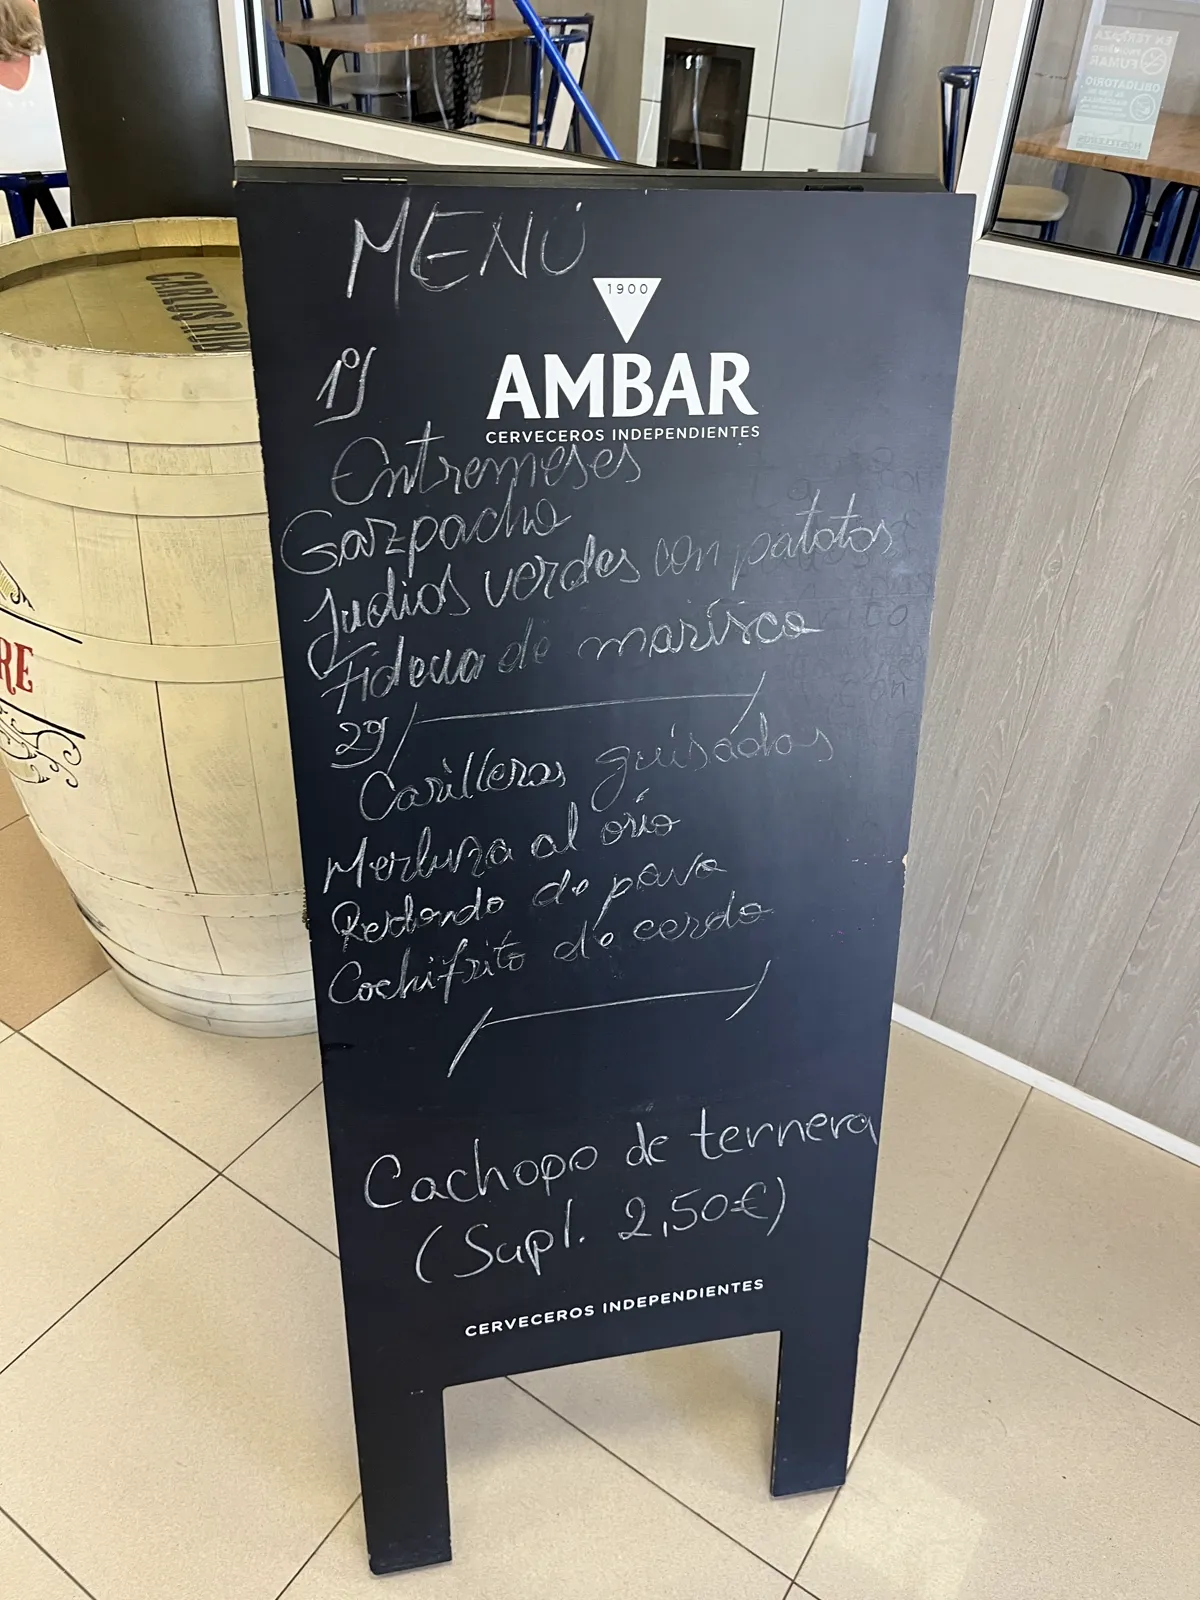 MENÚ
1900
AMBAR
CERVECEROS INDEPENDIENTES
1º/
Entremeses
Gazpacho
Judias verdes con patatas
Fideua de marisco
2º/
Carilleras guisadas
Merluza al orio
Redondo de pavo
Cochifrito de cerdo
Cachopo de ternera
(Supl. 2,50€)
CERVECEROS INDEPENDIENTES
CARLOS
RE
EN TERRAZA
FUMAR
OBLIGATORIO